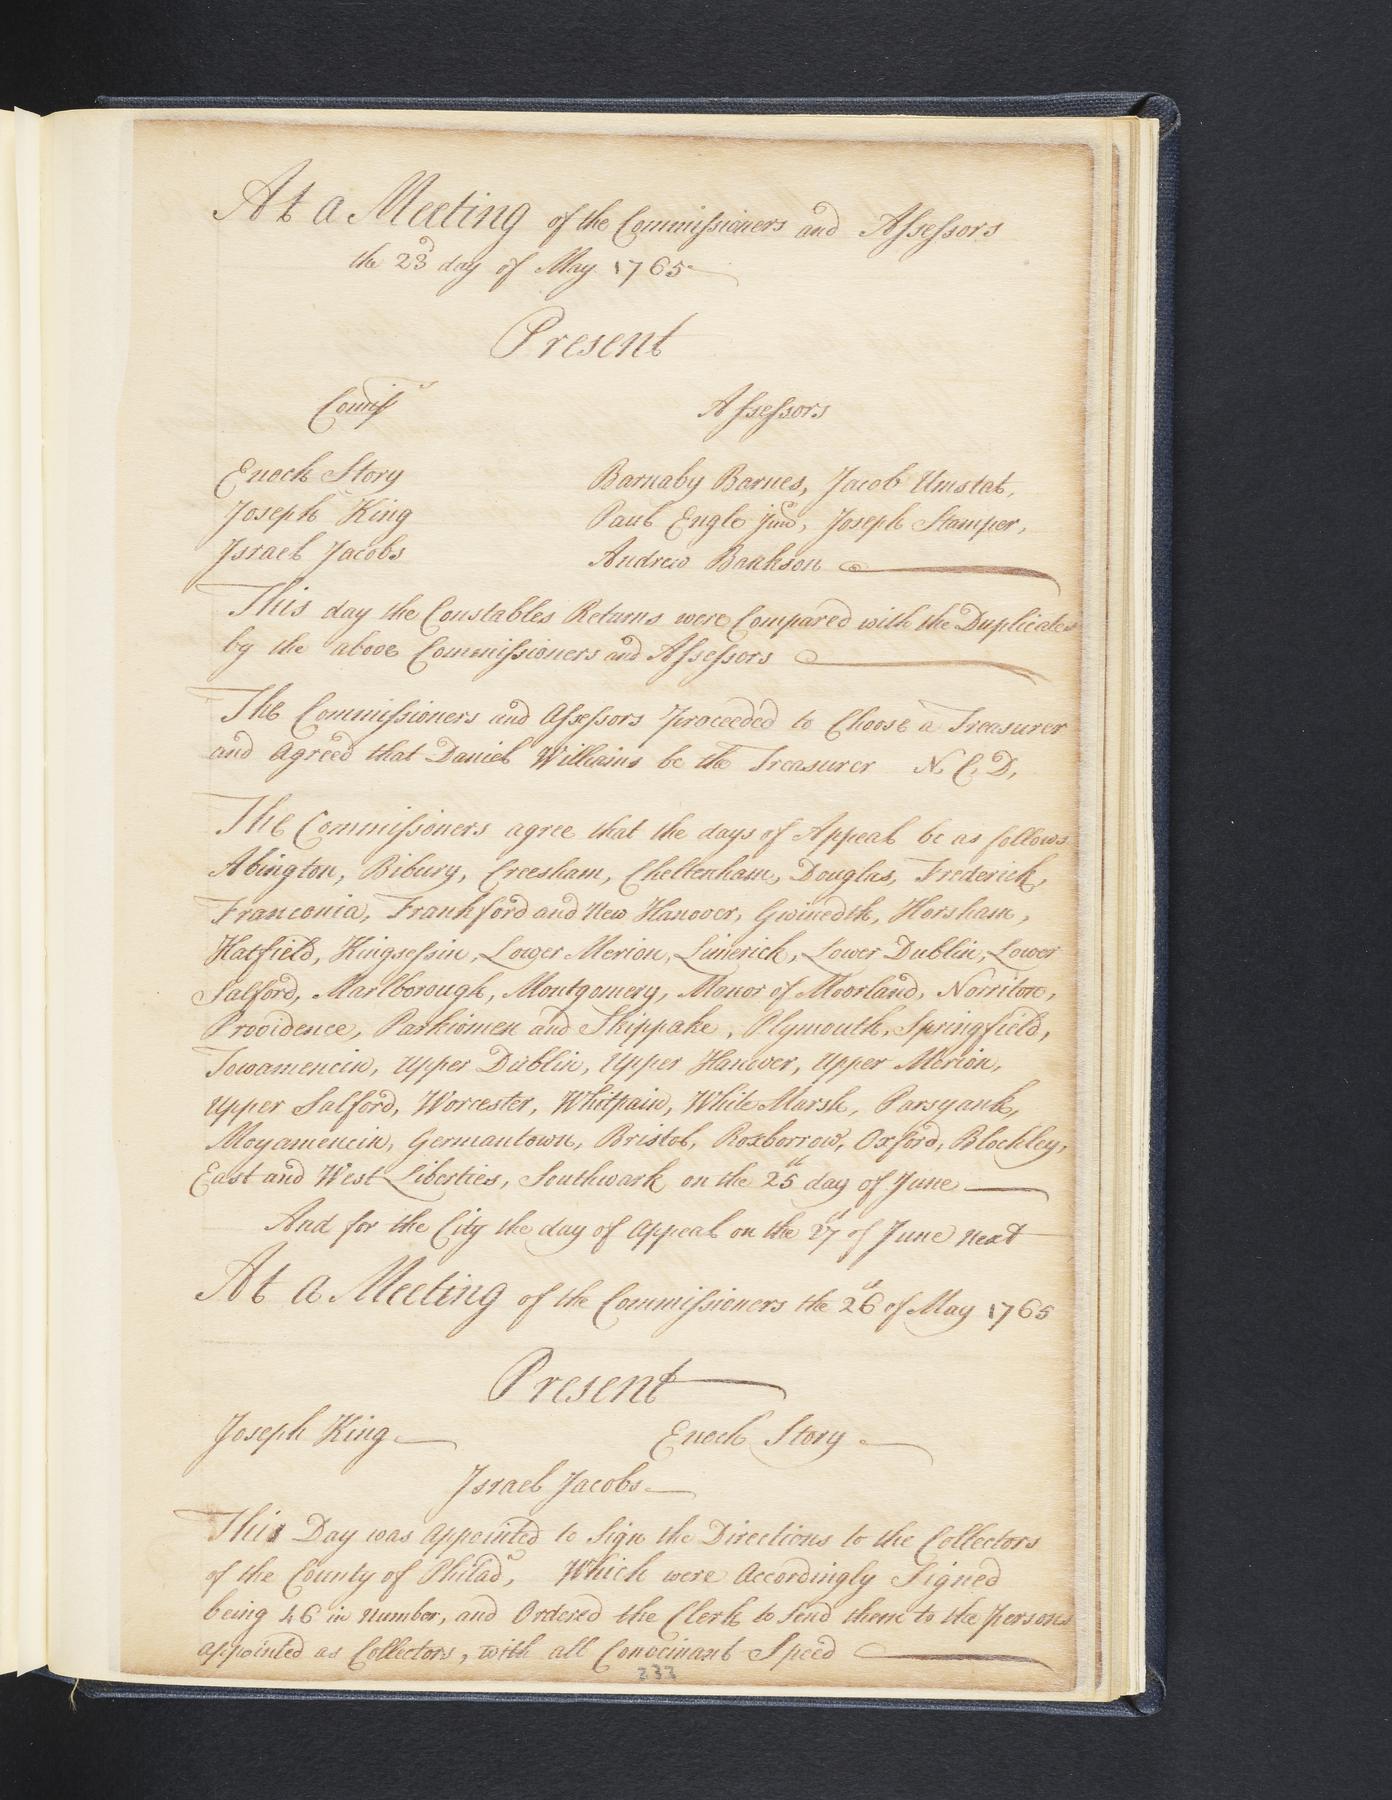 At a Meeting of the Commissioners and Assessors
the 23d day of May 1765
Present
Comiss
Assessors
Enoch Story
Barnaby Barnes, Jacob Umstat,
Joseph King
Paul Engle Junr, Joseph Stamper,
Israel Jacobs
Andrew Bankson
This day the Constables Returns were Compared with the Duplicates
by the above Commissioners and Assessors
The Commissioners and Assessors proceeded to Choose a Treasurer
and Agreed that Daniel Williams be the Treasurer N, C, D,
The Commissioners agree that the days of Appeal be as follows
Abington, Bibury, Creesham, Cheltenham, Douglas, Frederick,
Franconia, Frankford and New Hanover, Gwinedth, Horsham,
Hatfield, Kingsessin, Lower Merion, Limerick, Lower Dublin, Lower
Salford, Marlborough, Montgomery, Manor of Moorland, Norriton,
Providence, Parkiomen and Skippake, Plymouth, Springfield,
Towamencin, Upper Dublin, Upper Hanover, Upper Merion,
Upper Salford, Worcester, Whitpain, White Marsh, Parsyank,
Moyamencin, Germantown, Bristol, Roxborrow, Oxford, Blockley,
East and West Liberties, Southwark on the 25th day of June
And for the City the day of Appeal on the 27th of June next
At a Meeting of the Commissioners the 26th of May 1765
Present
Joseph King
Enoch Story
Israel Jacobs
This Day was appointed to Sign the Directions to the Collectors
of the County of Philada, Which were Accordingly Signed
being 46 in Number, and Ordered the Clerk to Send them to the persons
appointed as Collectors, with all Convenient Speed
232